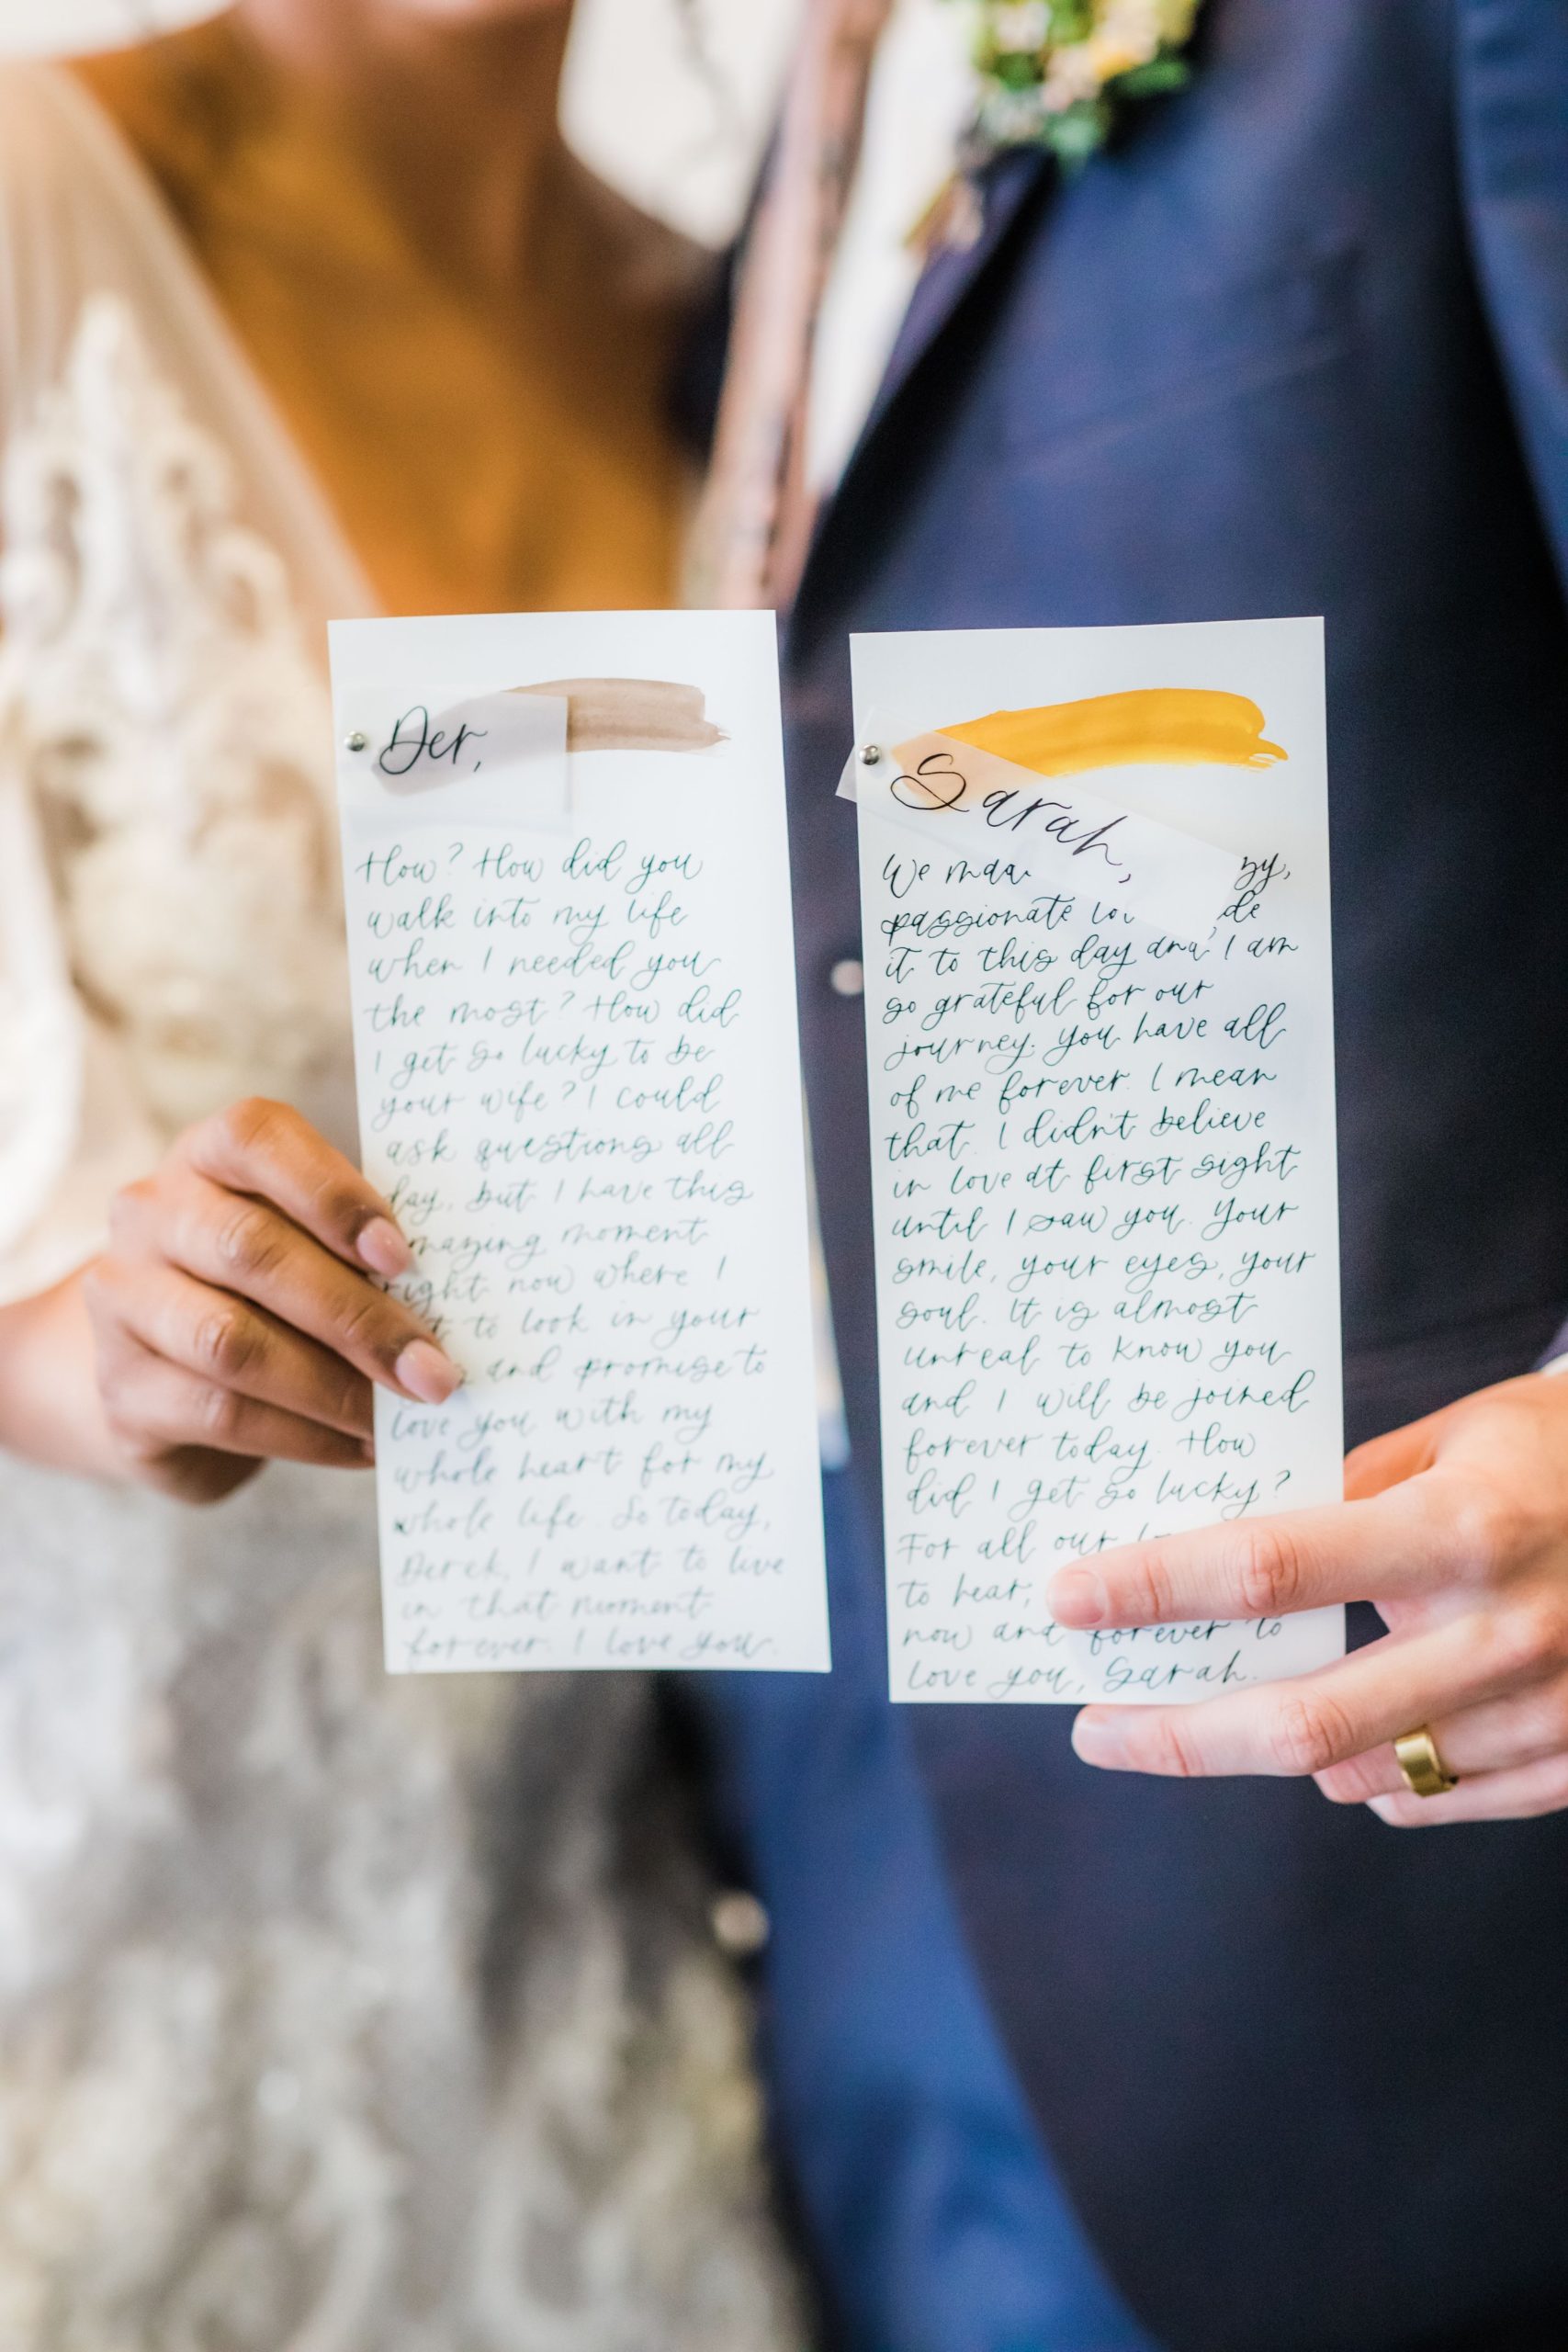 Der,
How? How did you
walk into my life
when I needed you
the most? How did
I get so lucky to be
your wife? I could
ask questions all
day, but I have this
amazing moment
right now where I
to look in your
and promise to
love you with my
whole heart for my
whole life. So today,
Derek, I want to live
in that moment
forever. I love you.
Sarah,
We
passionate
it to this day and I am
so grateful for our
journey. You have all
of me forever. I mean
that. I didn't believe
in love at first sight
until I saw you. Your
smile, your eyes, your
soul. It is almost
unreal to know you
and I will be joined
forever today. How
did I get so lucky?
For all our
to hear,
now and forever to
love you, Sarah.